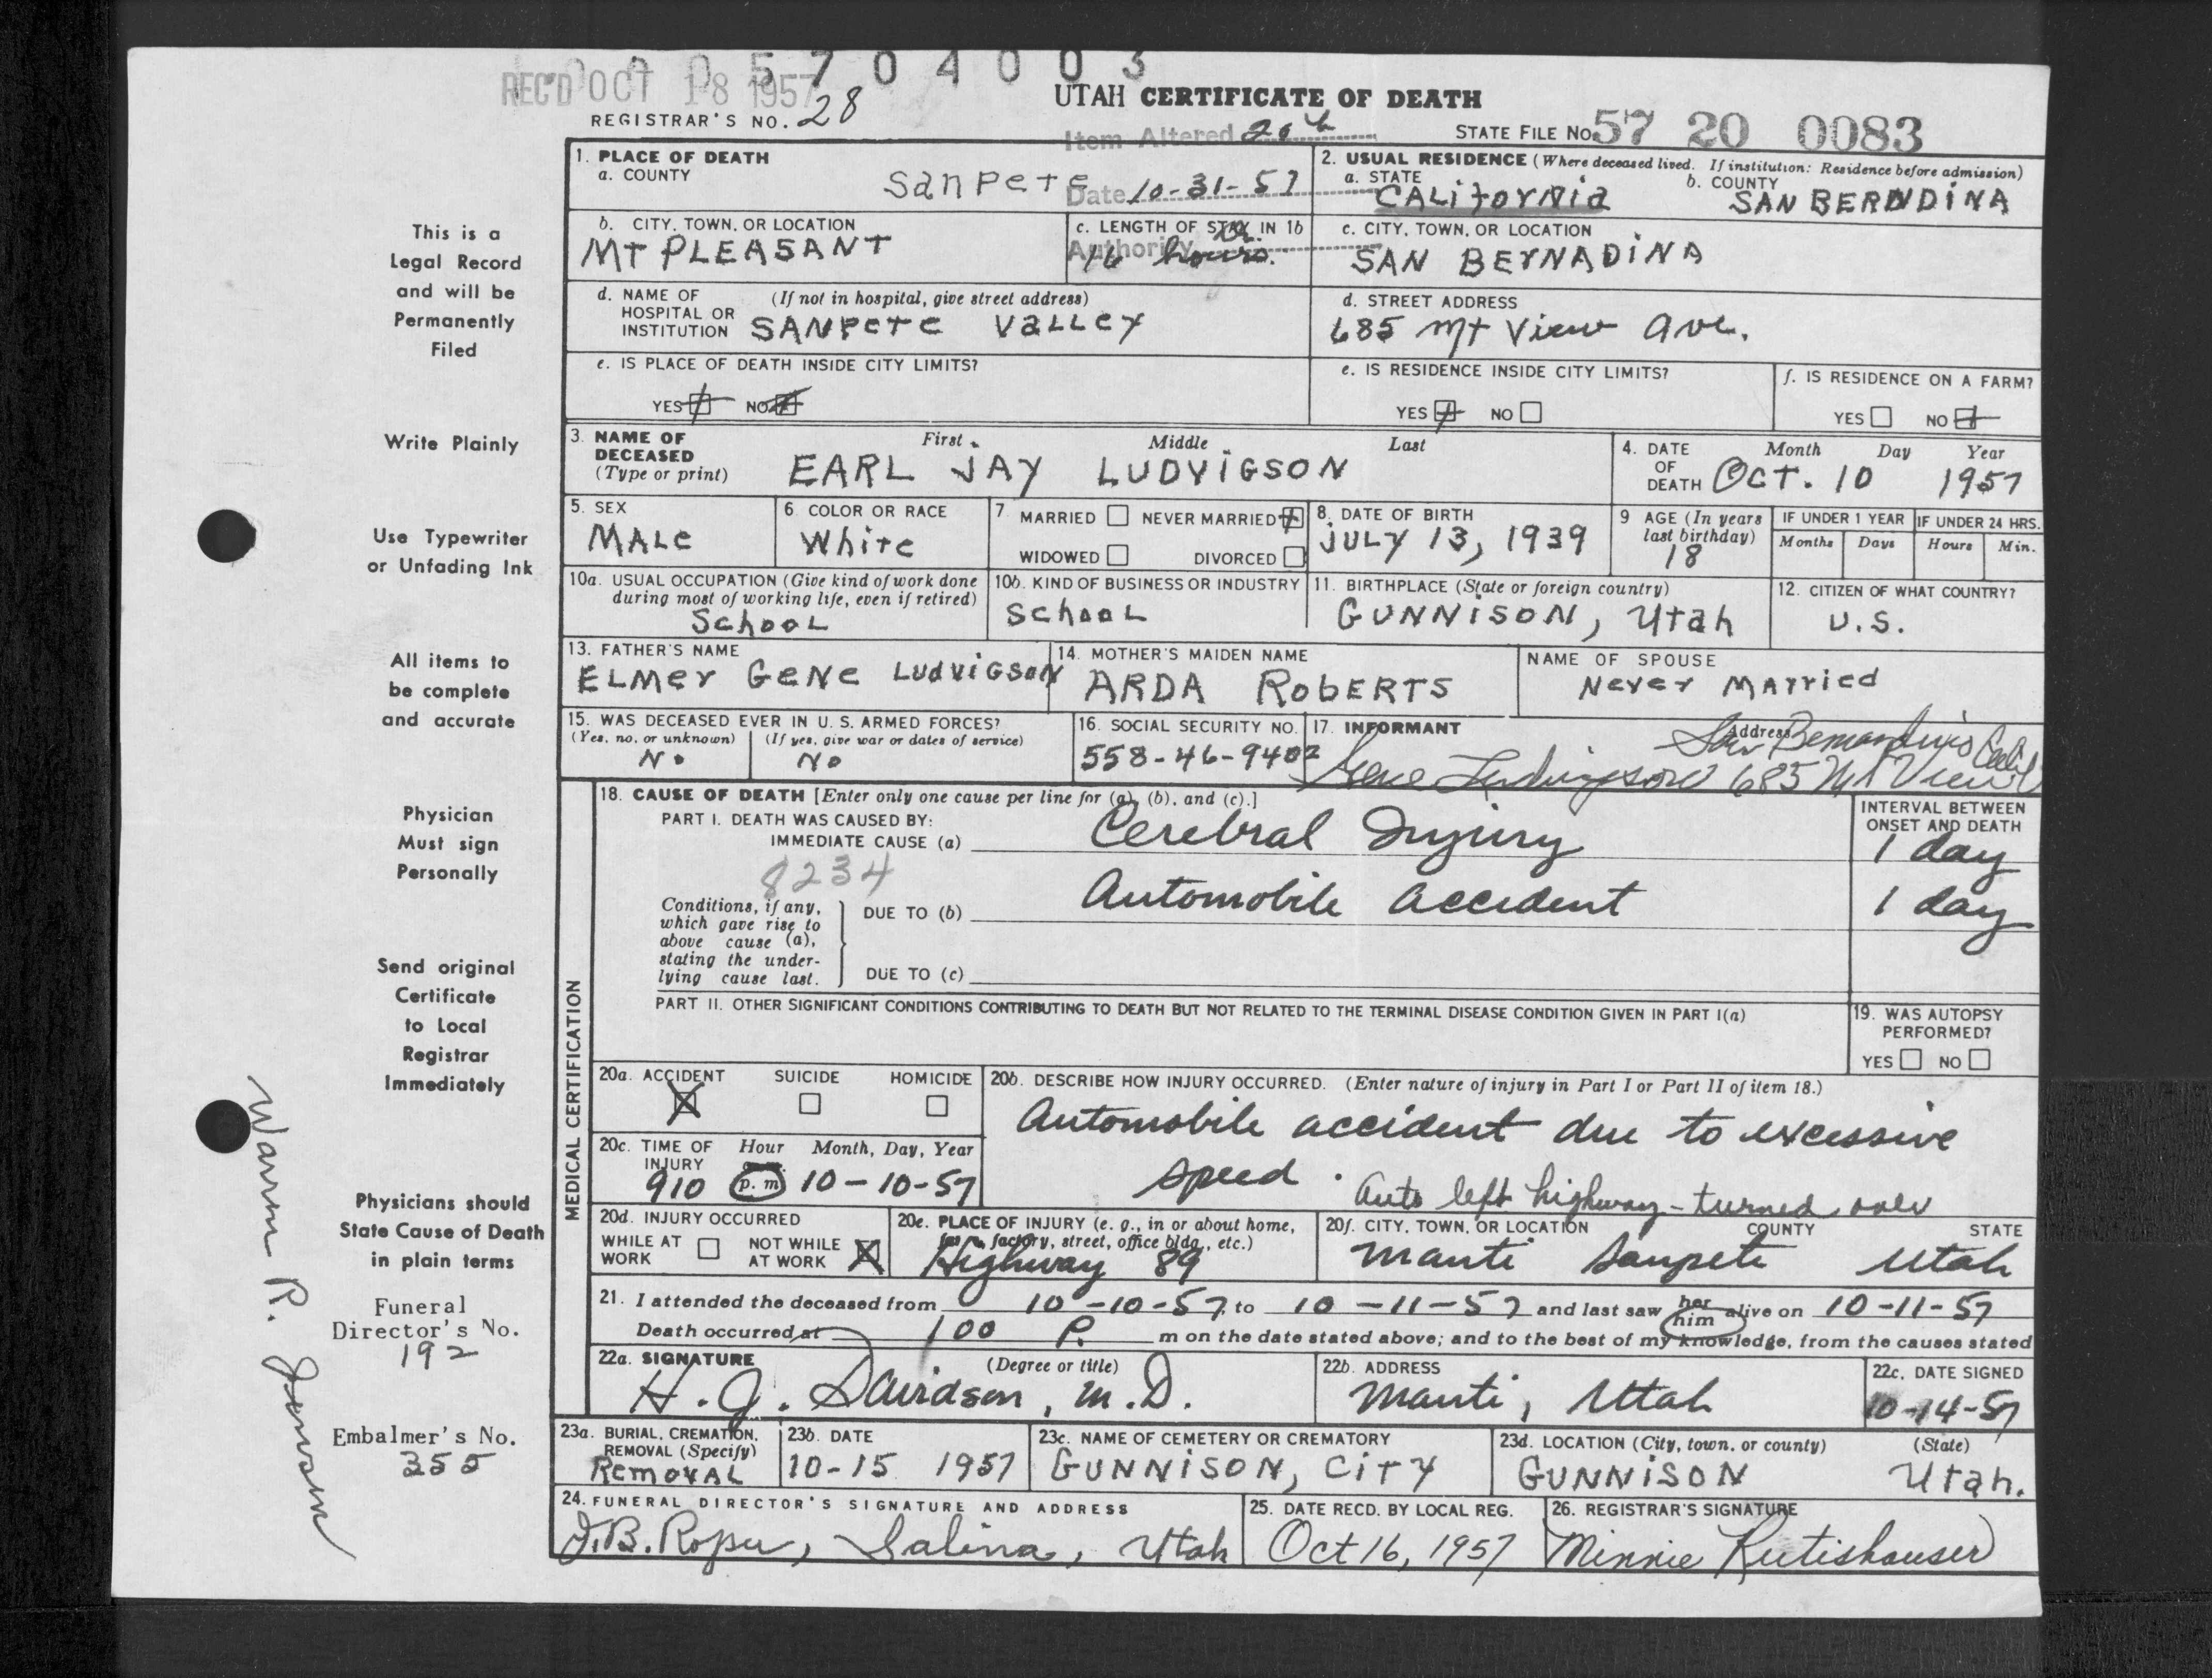 0 0 0 5 7 0 4 0 0 0 3
REC'D OCT 18 1957
REGISTRAR'S NO. 28
UTAH CERTIFICATE OF DEATH
Item Altered 20b
STATE FILE No. 57 20 0083
1. PLACE OF DEATH
a. COUNTY
SanPete
Date 10-31-57
2. USUAL RESIDENCE (Where deceased lived. If institution: Residence before admission)
a. STATE
CALifornia
b. COUNTY
SAN BERNDiNA
b. CITY, TOWN, OR LOCATION
MT PLEASANT
c. LENGTH OF STAY IN 1b
Authority
16 hours.
c. CITY, TOWN, OR LOCATION
SAN BErNADiNA
d. NAME OF HOSPITAL OR INSTITUTION
(If not in hospital, give street address)
SANPeTe VaLLey
d. STREET ADDRESS
685 Mt View ave.
e. IS PLACE OF DEATH INSIDE CITY LIMITS?
YES NO
e. IS RESIDENCE INSIDE CITY LIMITS?
YES NO
f. IS RESIDENCE ON A FARM?
YES NO
3. NAME OF DECEASED
(Type or print)
First Middle Last
EARL JAY LUDVIGSON
4. DATE OF DEATH
Month Day Year
OCT. 10 1957
5. SEX
MALe
6. COLOR OR RACE
White
7. MARRIED NEVER MARRIED
WIDOWED DIVORCED
8. DATE OF BIRTH
JULY 13, 1939
9 AGE (In years last birthday)
18
IF UNDER 1 YEAR
Months Days
IF UNDER 24 HRS.
Hours Min.
10a. USUAL OCCUPATION (Give kind of work done during most of working life, even if retired)
SchooL
10b. KIND OF BUSINESS OR INDUSTRY
SchooL
11. BIRTHPLACE (State or foreign country)
GUNNiSON, Utah
12. CITIZEN OF WHAT COUNTRY?
U.S.
13. FATHER'S NAME
ELMer GeNe LudviGsoN
14. MOTHER'S MAIDEN NAME
ARDA RobERTS
NAME OF SPOUSE
Never Married
15. WAS DECEASED EVER IN U. S. ARMED FORCES?
(Yes, no, or unknown) (If yes, give war or dates of service)
No No
16. SOCIAL SECURITY NO.
558-46-9402
17. INFORMANT
Address
San Bernardino Calif
Gene Ludvigson 685 Mt View
MEDICAL CERTIFICATION
18. CAUSE OF DEATH [Enter only one cause per line for (a), (b), and (c).]
PART I. DEATH WAS CAUSED BY:
IMMEDIATE CAUSE (a) Cerebral Injury
8234
INTERVAL BETWEEN ONSET AND DEATH
1 day
Conditions, if any, which gave rise to above cause (a), stating the underlying cause last.
DUE TO (b) Automobile accident
1 day
DUE TO (c)
PART II. OTHER SIGNIFICANT CONDITIONS CONTRIBUTING TO DEATH BUT NOT RELATED TO THE TERMINAL DISEASE CONDITION GIVEN IN PART I(a)
19. WAS AUTOPSY PERFORMED?
YES NO
20a. ACCIDENT SUICIDE HOMICIDE
20b. DESCRIBE HOW INJURY OCCURRED. (Enter nature of injury in Part I or Part II of item 18.)
Automobile accident due to excessive
speed. Auto left highway - turned over
20c. TIME OF INJURY
Hour Month, Day, Year
910 p. m 10-10-57
20d. INJURY OCCURRED
WHILE AT WORK NOT WHILE AT WORK
20e. PLACE OF INJURY (e. g., in or about home, farm, factory, street, office bldg., etc.)
Highway 89
20f. CITY, TOWN, OR LOCATION COUNTY STATE
Manti Sanpete Utah
21. I attended the deceased from 10-10-57, to 10-11-57 and last saw her him alive on 10-11-57
Death occurred at 100 P. m on the date stated above; and to the best of my knowledge, from the causes stated
22a. SIGNATURE (Degree or title)
H. J. Davidson, M.D.
22b. ADDRESS
Manti, Utah
22c. DATE SIGNED
10-14-57
23a. BURIAL, CREMATION, REMOVAL (Specify)
RemoVAL
23b. DATE
10-15 1957
23c. NAME OF CEMETERY OR CREMATORY
GUNNiSON, CiTY
23d. LOCATION (City, town, or county) (State)
GUNNiSON Utah.
24. FUNERAL DIRECTOR'S SIGNATURE AND ADDRESS
J.B. Roper, Salina, Utah
25. DATE RECD. BY LOCAL REG.
Oct 16, 1957
26. REGISTRAR'S SIGNATURE
Minnie Rutishauser
This is a
Legal Record
and will be
Permanently
Filed
Write Plainly
Use Typewriter
or Unfading Ink
All items to
be complete
and accurate
Physician
Must sign
Personally
Send original
Certificate
to Local
Registrar
Immediately
Physicians should
State Cause of Death
in plain terms
Funeral
Director's No.
192
Embalmer's No.
355
Warren R. Jensen